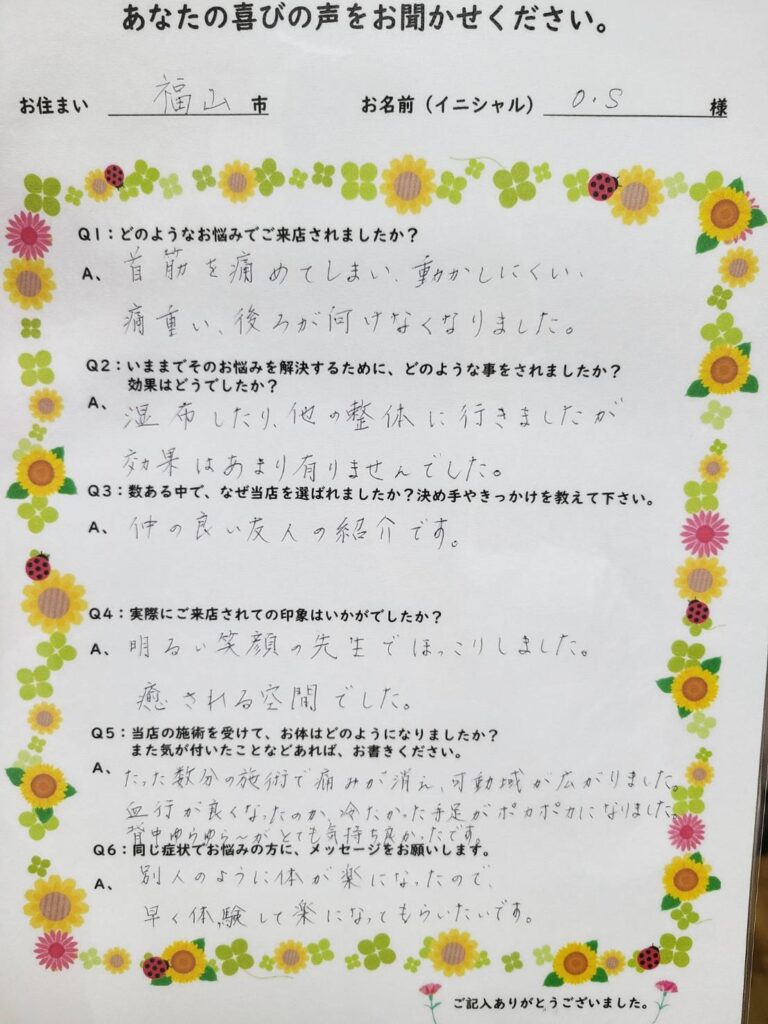 あなたの喜びの声をお聞かせください。
お住まい 福山 市 お名前（イニシャル） O.S 様
Q1：どのようなお悩みでご来店されましたか？
A、首筋を痛めてしまい、動かしにくい、
痛重い、後ろが向けなくなりました。
Q2：いままでそのお悩みを解決するために、どのような事をされましたか？
効果はどうでしたか？
A、湿布したり、他の整体に行きましたが
効果はあまり有りませんでした。
Q3：数ある中で、なぜ当店を選ばれましたか？決め手やきっかけを教えて下さい。
A、仲の良い友人の紹介です。
Q4：実際にご来店されての印象はいかがでしたか？
A、明るい笑顔の先生でほっこりしました。
癒される空間でした。
Q5：当店の施術を受けて、お体はどのようになりましたか？
また気が付いたことなどあれば、お書きください。
A、たった数分の施術で痛みが消え、可動域が広がりました。
血行が良くなったのか、冷たかった手足がポカポカになりました。
背中ゆらゆら～がとても気持ち良かったです。
Q6：同じ症状でお悩みの方に、メッセージをお願いします。
A、別人のように体が楽になったので、
早く体験して楽になってもらいたいです。
ご記入ありがとうございました。